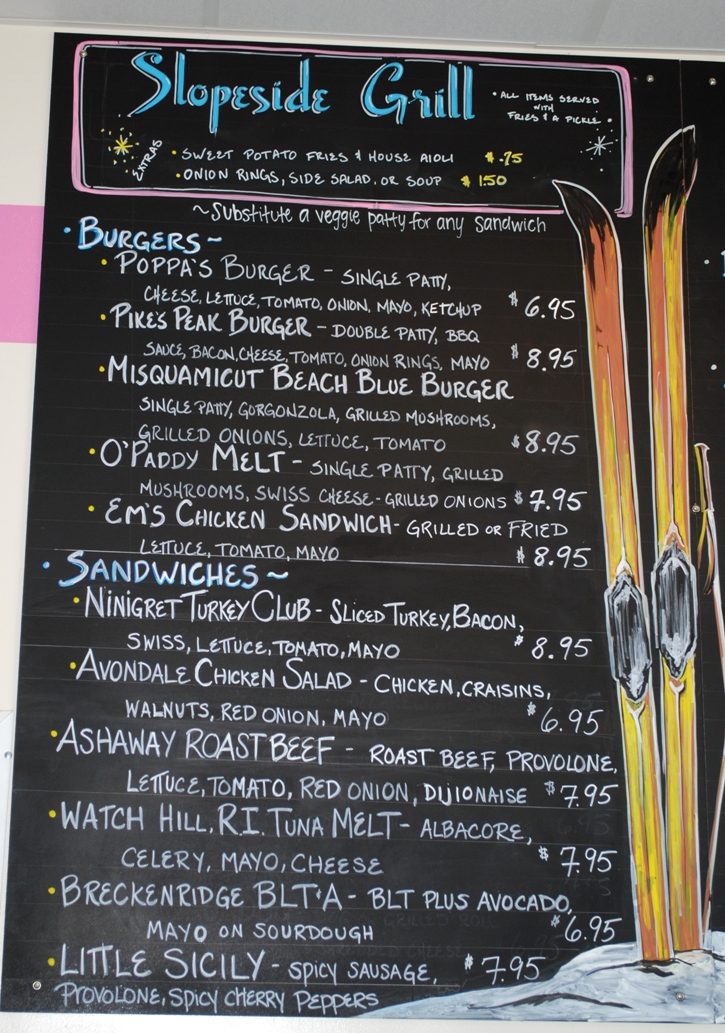 Slopeside Grill
• ALL ITEMS SERVED
WITH
FRIES & A PICKLE •
EXTRAS
• SWEET POTATO FRIES & HOUSE AIOLI $ .75
• ONION RINGS, SIDE SALAD, OR SOUP $ 1.50
~Substitute a veggie patty for any sandwich
• BURGERS ~
• POPPA'S BURGER - SINGLE PATTY,
CHEESE, LETTUCE, TOMATO, ONION, MAYO, KETCHUP $ 6.95
• PIKE'S PEAK BURGER - DOUBLE PATTY, BBQ
SAUCE, BACON, CHEESE, TOMATO, ONION RINGS, MAYO $ 8.95
• MISQUAMICUT BEACH BLUE BURGER
SINGLE PATTY, GORGONZOLA, GRILLED MUSHROOMS,
GRILLED ONIONS, LETTUCE, TOMATO $ 8.95
• O'PADDY MELT - SINGLE PATTY, GRILLED
MUSHROOMS, SWISS CHEESE - GRILLED ONIONS $ 7.95
• EM'S CHICKEN SANDWICH - GRILLED OR FRIED
LETTUCE, TOMATO, MAYO $ 8.95
• SANDWICHES ~
• NINIGRET TURKEY CLUB - SLICED TURKEY, BACON,
SWISS, LETTUCE, TOMATO, MAYO $ 8.95
• AVONDALE CHICKEN SALAD - CHICKEN, CRAISINS,
WALNUTS, RED ONION, MAYO $ 6.95
• ASHAWAY ROAST BEEF - ROAST BEEF, PROVOLONE,
LETTUCE, TOMATO, RED ONION, DIJIONAISE $ 7.95
• WATCH HILL, R.I. TUNA MELT - ALBACORE,
CELERY, MAYO, CHEESE $ 7.95
• BRECKENRIDGE BLT'A - BLT PLUS AVOCADO,
MAYO ON SOURDOUGH $ 6.95
• LITTLE SICILY - SPICY SAUSAGE, $ 7.95
PROVOLONE, SPICY CHERRY PEPPERS